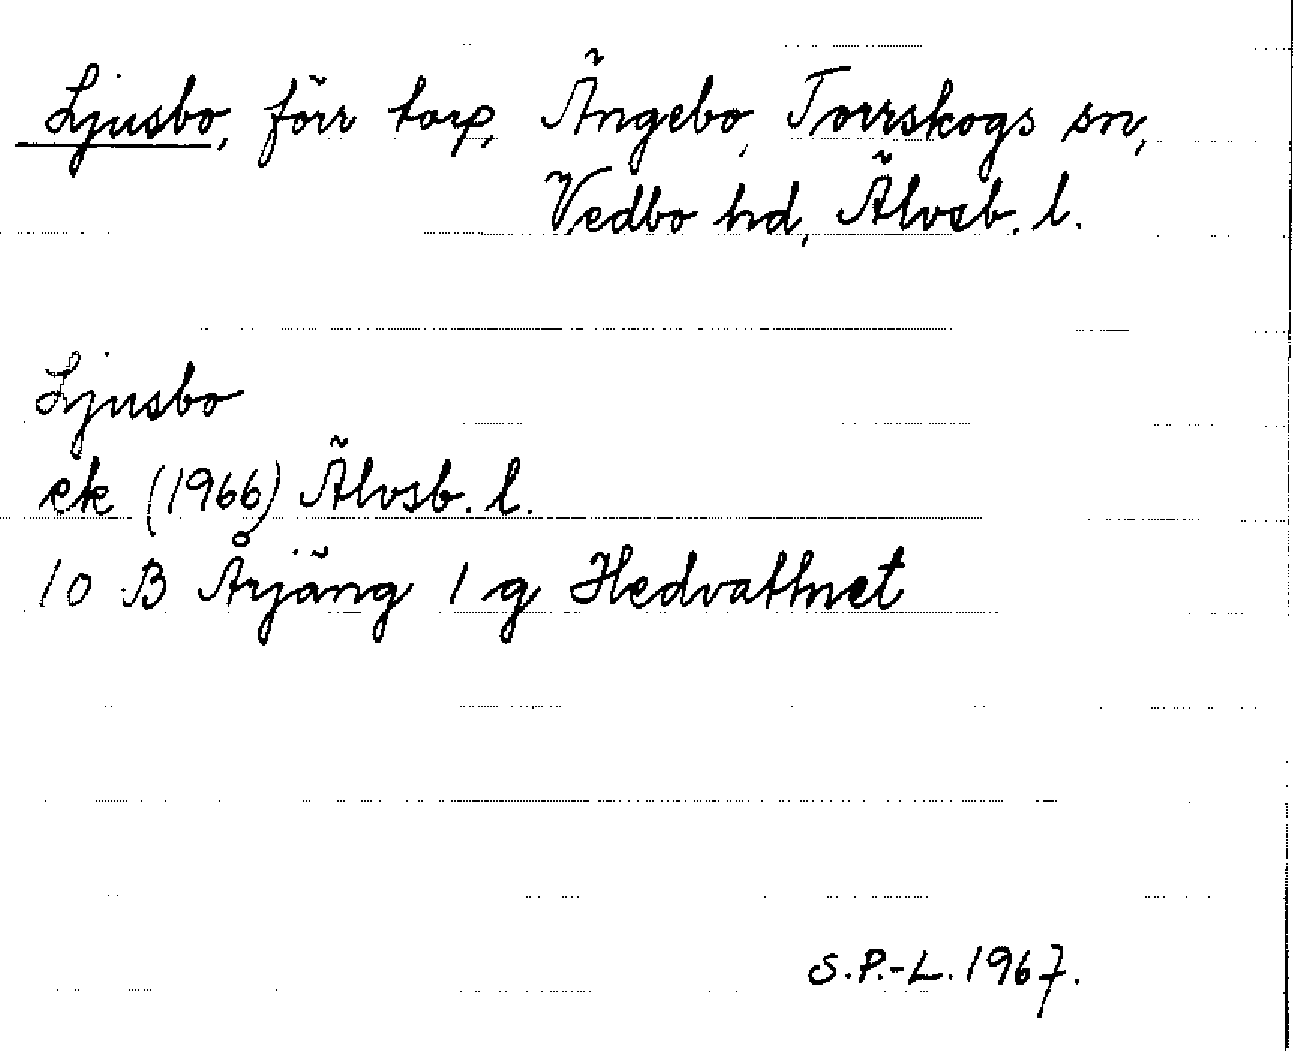 Ljusbo, förr torp, Ängebo, Torrskogs sn,
Vedbo hd, Älvsb. l.
Ljusbo
ek (1966) Älvsb. l.
10 B Årjäng 1 g Hedvattnet
S.P.-L. 1967.